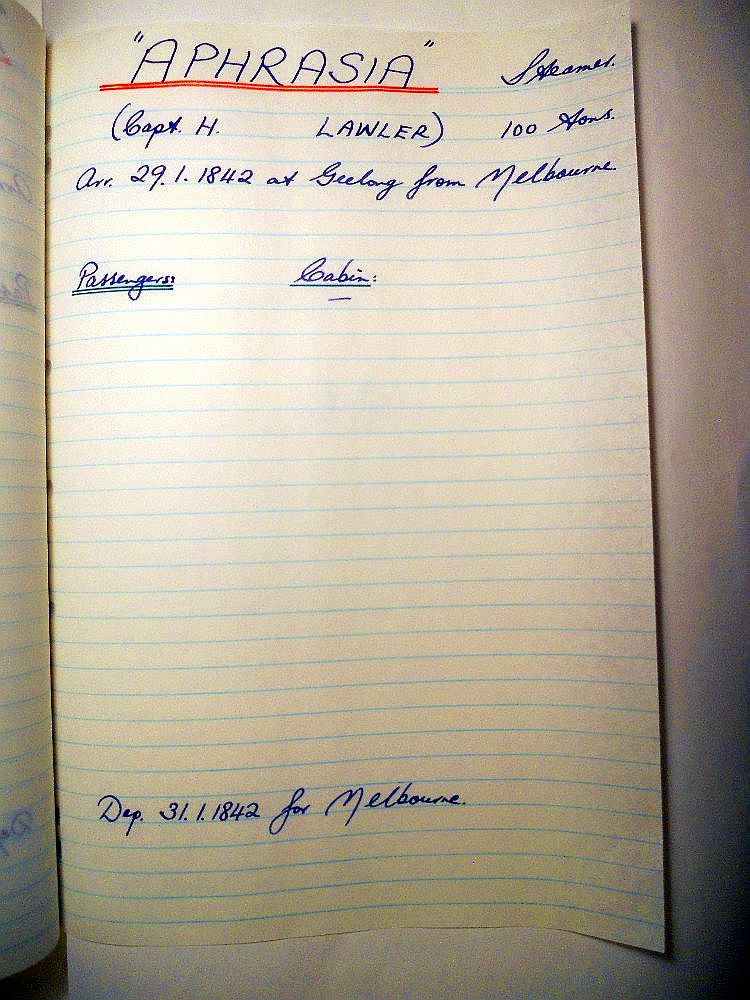 "APHRASIA" Steamer.
(Capt. H. LAWLER) 100 tons.
Arr. 29.1.1842 at Geelong from Melbourne.
Passengers: Cabin:
—
Dep. 31.1.1842 for Melbourne.